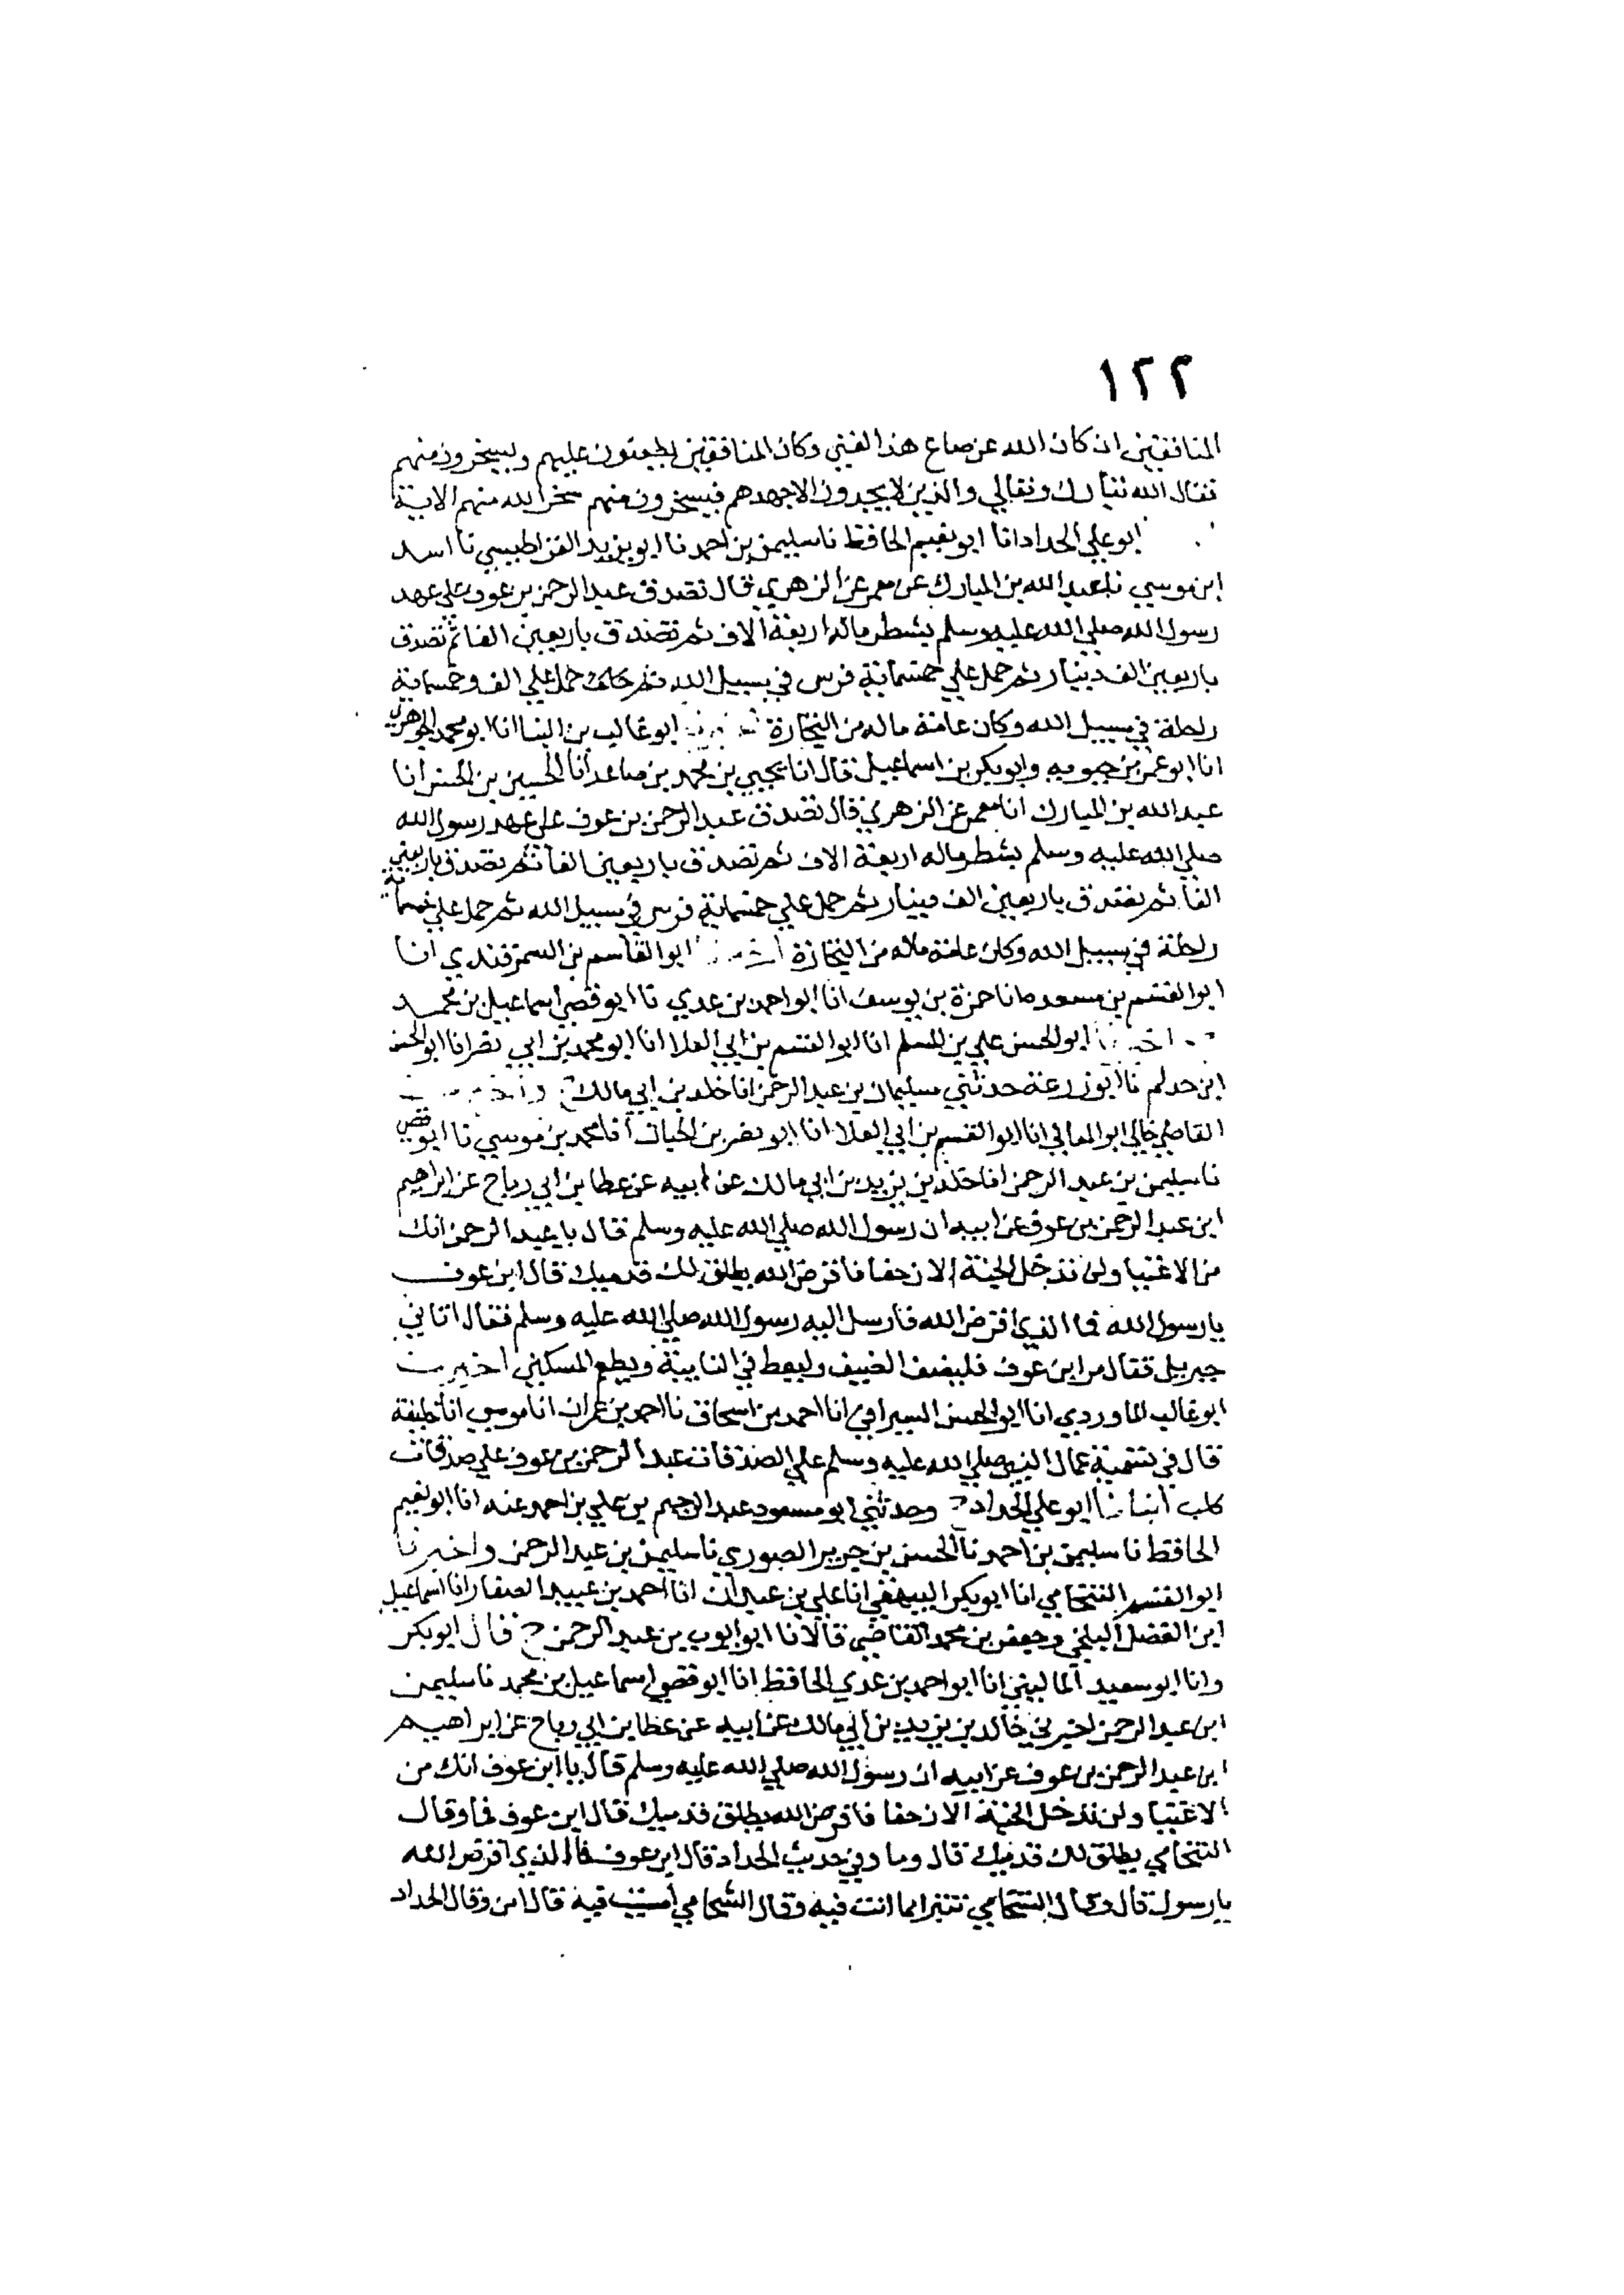 ١٢٢
المنافقين ان كان الله عن صاع هذا لغني وكان المنافقين يطعنون عليهم ويسخرون منهم
فقال الله تبارك وتعالي والذين لا يجدون الا جهدهم فيسخرون منهم سخر الله منهم الاية
ابو علي الحداد انا ابو نعيم الحافظ نا سليمن بن احمد نا ابو يزيد القراطيسي نا اسد
ابن موسي نا عبد الله بن المبارك عن معمر عن الزهري قال تصدق عبد الرحمن بن عوف علي عهد
رسول الله صلي الله عليه وسلم بشطر ماله اربعة الاف ثم تصدق باربعين الفا ثم تصدق
باربعين الف دينار ثم حمل علي خمسماية فرس في سبيل الله ثم حمل علي الف وخمسماية
راحلة في سبيل الله وكان عامة ماله من التجارة ابو غالب بن البنا انا ابو محمد الجوهري
انا ابو عمر بن حيويه وابو بكر بن اسماعيل قال انا يحيي بن محمد بن صاعد انا الحسين بن الحسن انا
عبد الله بن المبارك انا معمر عن الزهري قال تصدق عبد الرحمن بن عوف علي عهد رسول الله
صلي الله عليه وسلم بشطر ماله اربعة الاف ثم تصدق باربعين الفا ثم تصدق باربعين
الفا ثم تصدق باربعين الف دينار ثم حمل علي خمسماية فرس في سبيل الله ثم حمل علي خمسماية
راحلة في سبيل الله وكان عامة ماله من التجارة ابو القاسم بن السمرقندي انا
ابو القسم بن مسعده انا حمزة بن يوسف انا ابو احمد بن عدي نا ابو قصي اسماعيل بن محمد
ابو الحسن علي بن المسلم انا ابو القسم بن ابي العلا انا ابو محمد بن ابي نصر انا ابو الحسن
ابن حدلم نا ابو زرعة حدثني سليمان بن عبد الرحمن انا خلد بن ابي مالك ح
القاضي خالي ابو المعالي انا ابو القسم بن ابي العلا انا ابو نصر بن الحيان انا محمد بن موسي نا ابو قصي
نا سليمن بن عبد الرحمن انا خلد بن يزيد بن ابي مالك عن ابيه عن عطا بن ابي رباح عن ابراهيم
ابن عبد الرحمن بن عوف عن ابيه ان رسول الله صلي الله عليه وسلم قال يا عبد الرحمن انك
من الاغنيا ولن تدخل الجنة الا زحفا فاقرض الله يطلق لك قدميك قال ابن عوف
يا رسول الله فما الذي اقرض الله فارسل اليه رسول الله صلي الله عليه وسلم فقال اتاني
جبريل فقال مر ابن عوف فليضف الضيف وليعط في النايبة ويطعم المسكين اخبرنا
ابو غالب الماوردي انا ابو الحسن السيرافي انا احمد بن اسحاق نا احمد بن عمران انا موسي انا خليفة
قال في تسمية عمال النبي صلي الله عليه وسلم علي الصدقات عبد الرحمن بن عوف علي صدقات
كلب انبانا ابو علي الحداد ح وحدثني ابو مسعود عبد الرحيم بن علي بن احمد عنه انا ابو نعيم
الحافظ نا سليمن بن احمد نا الحسن بن جرير الصوري نا سليمن بن عبد الرحمن واخبرنا
ابو القسم الشحامي انا ابو بكر البيهقي انا علي بن عبدان انا احمد بن عبيد الصفار انا اسماعيل
ابن الفضل البلخي وجعفر بن محمد القاضي قالا نا ابو ايوب بن عبد الرحمن ح قال ابو بكر
وانا ابو سعيد الماليني انا ابو احمد بن عدي الحافظ انا ابو قصي اسماعيل بن محمد نا سليمن
ابن عبد الرحمن اخبرني خالد بن يزيد بن ابي مالك عن ابيه عن عطا بن ابي رباح عن ابراهيم
ابن عبد الرحمن بن عوف عن ابيه ان رسول الله صلي الله عليه وسلم قال يا ابن عوف انك من
الاغنيا ولن تدخل الجنة الا زحفا فاقرض الله يطلق قدميك قال ابن عوف فما وقال
الشحامي يطلق لك قدميك قال وما وفي حديث الحداد قال ابن عوف فما الذي اقرض الله
يا رسول قال وقال الشحامي تتبرا مما انت فيه وقال الشحامي امسيت فيه قال امن وقال الحداد